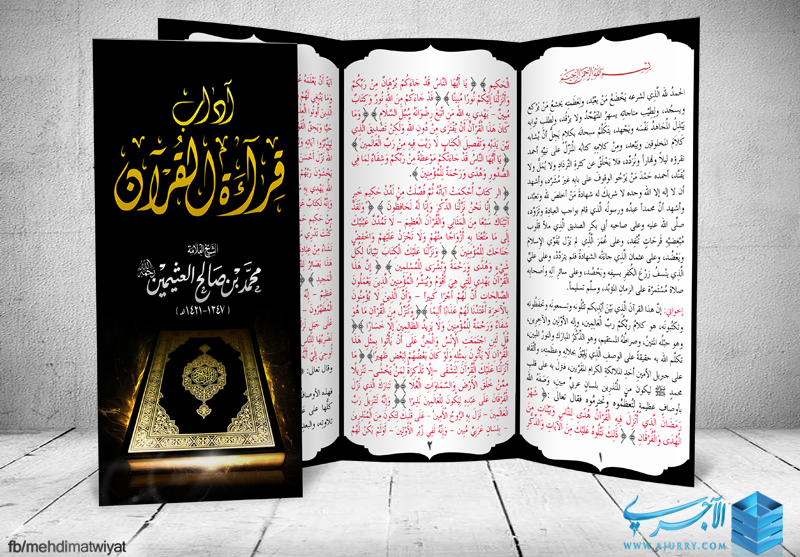 آداب
قرآءة القرآن
للشيخ العلامة
محمد بن صالح العثيمين رحمه الله
(١٣٤٧-١٤٢١هـ)
بسم الله الرحمن الرحيم
الحمدُ لله الَّذِي لشرعه يَخْضَعُ مَنْ يعْبُد، ولِعَظَمتِه يخشعُ مَنْ يَرْكع
ويسجُد، ولِطِيْب مناجاتِه يسهرُ المتَهْجِّدُ ولا يرْقُد، ولِطَلب ثوابِه
يَبْذِلُ المُجَاهدُ نَفْسَه ويَجْهد، يتكلَّمُ سبحانَه بكلامٍ يَجِلُّ أنْ يُشَابِه
كَلاَمَ المخلوقينَ ويَبْعد، ومِنْ كلامِهِ كتابُه المُنَزَّلُ على نبيِّه أحمد
نقرؤُه ليلاً ونهاراً ونُرَدِّد، فلا يَخْلَقُ عن كثرةِ التَّردادِ ولا يُمَلُّ ولا
يُفَنَّد، أحمدُه حَمْدَ مَنْ يَرْجُو الوقوفَ على بابِه غيرَ مُشَرَّد، وأشهد
أن لا إله إلا الله وحده لا شريك له شهادةَ مَنْ أخلصَ لله وتعبَّد،
وأشهد أنَّ محمداً عبدُه ورسولُه الَّذِي قامَ بواجب العبادةِ وتَزَوَّد،
صلَّى الله عليه وعلى صاحبِه أبي بكر الصديق الَّذِي ملأ قلوبَ
مُبْغِضيْهِ قَرحَاتٍ تُنْفِد، وعلى عُمَرَ الَّذِي لم يَزَلْ يُقَوِّي الإِسلامَ
ويَعْضُد، وعلى عثمانَ الَّذِي جاءَتْه الشهادةُ فلم يتَرَدَّدْ، وعلى عليٍّ
الَّذِي يَنْسفُ زرْعَ الكفرِ بسيفِه ويَحْصُد، وعلى سائرِ آلِهِ وأصحابِه
صلاةً مُسْتَمِرَّةً على الزمانِ المُؤبَّد، وسلَّم تسليماً.
إخواني: إنَّ هذا القرآنَ الَّذِي بَيْنَ أيْدِيكم تتلُونه وتسمعونَه وتحْفَظُونَه
وتكتُبُونَه، هو كلامُ ربِّكُمْ ربِّ العَالِمين، وإِلهِ الأوَّلين والآخِرين،
وهو حبْلُه المتينُ، وصراطُهُ المستقيم، وهو الذكْرُ المبَاركُ والنورُ المبين،
تكلَّم الله به حقيقةً على الوصفِ الَّذِي يَلِيْقُ بِجلالِه وعظمتِه، وألْقَاه
على جبريلَ الأمين أحدِ الملائكةِ الكرامِ المقرَّبين، فنزَلَ به على قلْبِ
محمدٍ ﷺ ليكونَ من المُنْذِرينَ بلسانٍ عربيٍّ مبينٍ، وَصَفهُ الله
بأوصَافٍ عظيمةٍ لِتُعظِّمُوه وتحترموه فقال تعالى: ﴿ شَهْرُ
رَمَضَانَ الَّذِي أُنزِلَ فِيهِ الْقُرْآنُ هُدًى لِلنَّاسِ وَبَيِّنَاتٍ مِنَ
الْهُدَى وَالْفُرْقَانِ ﴾ ﴿ ذَلِكَ نَتْلُوهُ عَلَيْكَ مِنَ الْآيَاتِ وَالذِّكْرِ
١
الْحَكِيمِ ﴾ ﴿ يَا أَيُّهَا النَّاسُ قَدْ جَاءَكُمْ بُرْهَانٌ مِنْ رَبِّكُمْ
وَأَنْزَلْنَا إِلَيْكُمْ نُورًا مُبِينًا ﴾ ﴿ قَدْ جَاءَكُمْ مِنَ اللَّهِ نُورٌ وَكِتَابٌ
مُبِينٌ - يَهْدِي بِهِ اللَّهُ مَنِ اتَّبَعَ رِضْوَانَهُ سُبُلَ السَّلَامِ ﴾ ﴿ وَمَا
كَانَ هَذَا الْقُرْآنُ أَنْ يُفْتَرَى مِنْ دُونِ اللَّهِ وَلَكِنْ تَصْدِيقَ الَّذِي
بَيْنَ يَدَيْهِ وَتَفْصِيلَ الْكِتَابِ لَا رَيْبَ فِيهِ مِنْ رَبِّ الْعَالَمِينَ ﴾
﴿ يَا أَيُّهَا النَّاسُ قَدْ جَاءَتْكُمْ مَوْعِظَةٌ مِنْ رَبِّكُمْ وَشِفَاءٌ لِمَا فِي
الصُّدُورِ وَهُدًى وَرَحْمَةٌ لِلْمُؤْمِنِينَ ﴾
﴿ الر كِتَابٌ أُحْكِمَتْ آيَاتُهُ ثُمَّ فُصِّلَتْ مِنْ لَدُنْ حَكِيمٍ خَبِيرٍ
﴾ ﴿ إِنَّا نَحْنُ نَزَّلْنَا الذِّكْرَ وَإِنَّا لَهُ لَحَافِظُونَ ﴾ ﴿ وَلَقَدْ
آتَيْنَاكَ سَبْعًا مِنَ الْمَثَانِي وَالْقُرْآنَ الْعَظِيمَ - لَا تَمُدَّنَّ عَيْنَيْكَ
إِلَى مَا مَتَّعْنَا بِهِ أَزْوَاجًا مِنْهُمْ وَلَا تَحْزَنْ عَلَيْهِمْ وَاخْفِضْ
جَنَاحَكَ لِلْمُؤْمِنِينَ ﴾ ﴿ وَنَزَّلْنَا عَلَيْكَ الْكِتَابَ تِبْيَانًا لِكُلِّ
شَيْءٍ وَهُدًى وَرَحْمَةً وَبُشْرَى لِلْمُسْلِمِينَ ﴾ ﴿ إِنَّ هَذَا
الْقُرْآنَ يَهْدِي لِلَّتِي هِيَ أَقْوَمُ وَيُبَشِّرُ الْمُؤْمِنِينَ الَّذِينَ يَعْمَلُونَ
الصَّالِحَاتِ أَنَّ لَهُمْ أَجْرًا كَبِيرًا - وَأَنَّ الَّذِينَ لَا يُؤْمِنُونَ
بِالْآخِرَةِ أَعْتَدْنَا لَهُمْ عَذَابًا أَلِيمًا ﴾ ﴿ وَنُنَزِّلُ مِنَ الْقُرْآنِ مَا هُوَ
شِفَاءٌ وَرَحْمَةٌ لِلْمُؤْمِنِينَ وَلَا يَزِيدُ الظَّالِمِينَ إِلَّا خَسَارًا ﴾ ﴿
قُلْ لَئِنِ اجْتَمَعَتِ الْإِنْسُ وَالْجِنُّ عَلَى أَنْ يَأْتُوا بِمِثْلِ هَذَا
الْقُرْآنِ لَا يَأْتُونَ بِمِثْلِهِ وَلَوْ كَانَ بَعْضُهُمْ لِبَعْضٍ ظَهِيرًا ﴾ ﴿ مَا
أَنْزَلْنَا عَلَيْكَ الْقُرْآنَ لِتَشْقَى - إِلَّا تَذْكِرَةً لِمَنْ يَخْشَى - تَنْزِيلًا
مِمَّنْ خَلَقَ الْأَرْضَ وَالسَّمَاوَاتِ الْعُلَا ﴾ ﴿ تَبَارَكَ الَّذِي نَزَّلَ
الْفُرْقَانَ عَلَى عَبْدِهِ لِيَكُونَ لِلْعَالَمِينَ نَذِيرًا ﴾ ﴿ وَإِنَّهُ لَتَنْزِيلُ رَبِّ
الْعَالَمِينَ - نَزَلَ بِهِ الرُّوحُ الْأَمِينُ - عَلَى قَلْبِكَ لِتَكُونَ مِنَ الْمُنْذِرِينَ
- بِلِسَانٍ عَرَبِيٍّ مُبِينٍ - وَإِنَّهُ لَفِي زُبُرِ الْأَوَّلِينَ - أَوَلَمْ يَكُنْ لَهُمْ
٢
fb/mehdimatwiyat
الآجري
WWW.AJURRY.COM